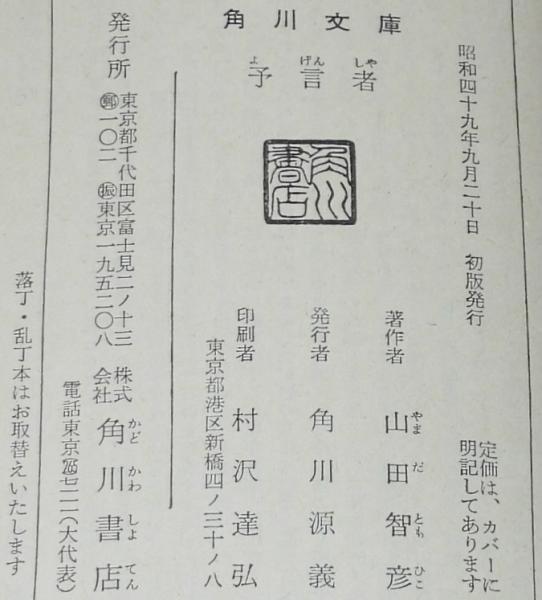 角川文庫
予言者
よ げん しや
角川書店
昭和四十九年九月二十日　初版発行
定価は、カバーに
明記してあります
著作者　山田智彦
やま だ とも ひこ
発行者　角川源義
印刷者　村沢達弘
東京都港区新橋四ノ三十ノ八
発行所
東京都千代田区富士見二ノ十三
㊞一〇二　㊞東京一九五二〇八
株式
会社
角川書店
かど かわ しよ てん
電話東京
(大代表)
落丁・乱丁本はお取替えいたします